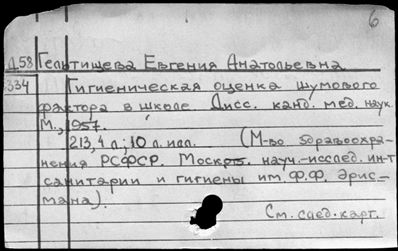 6
Д58 Гельтищева Евгения Анатольевна
334 Гигиеническая оценка шумового
фактора в школе. Дисс. канд. мед. наук.
М., 1957.
213, 4 л; 10 л. илл. (М-во здравоохра-
нения РСФСР. Москрв. науч.-исслед. ин-т
санитарии и гигиены им. Ф.Ф. Эрис-
мана).
См. след. карт.